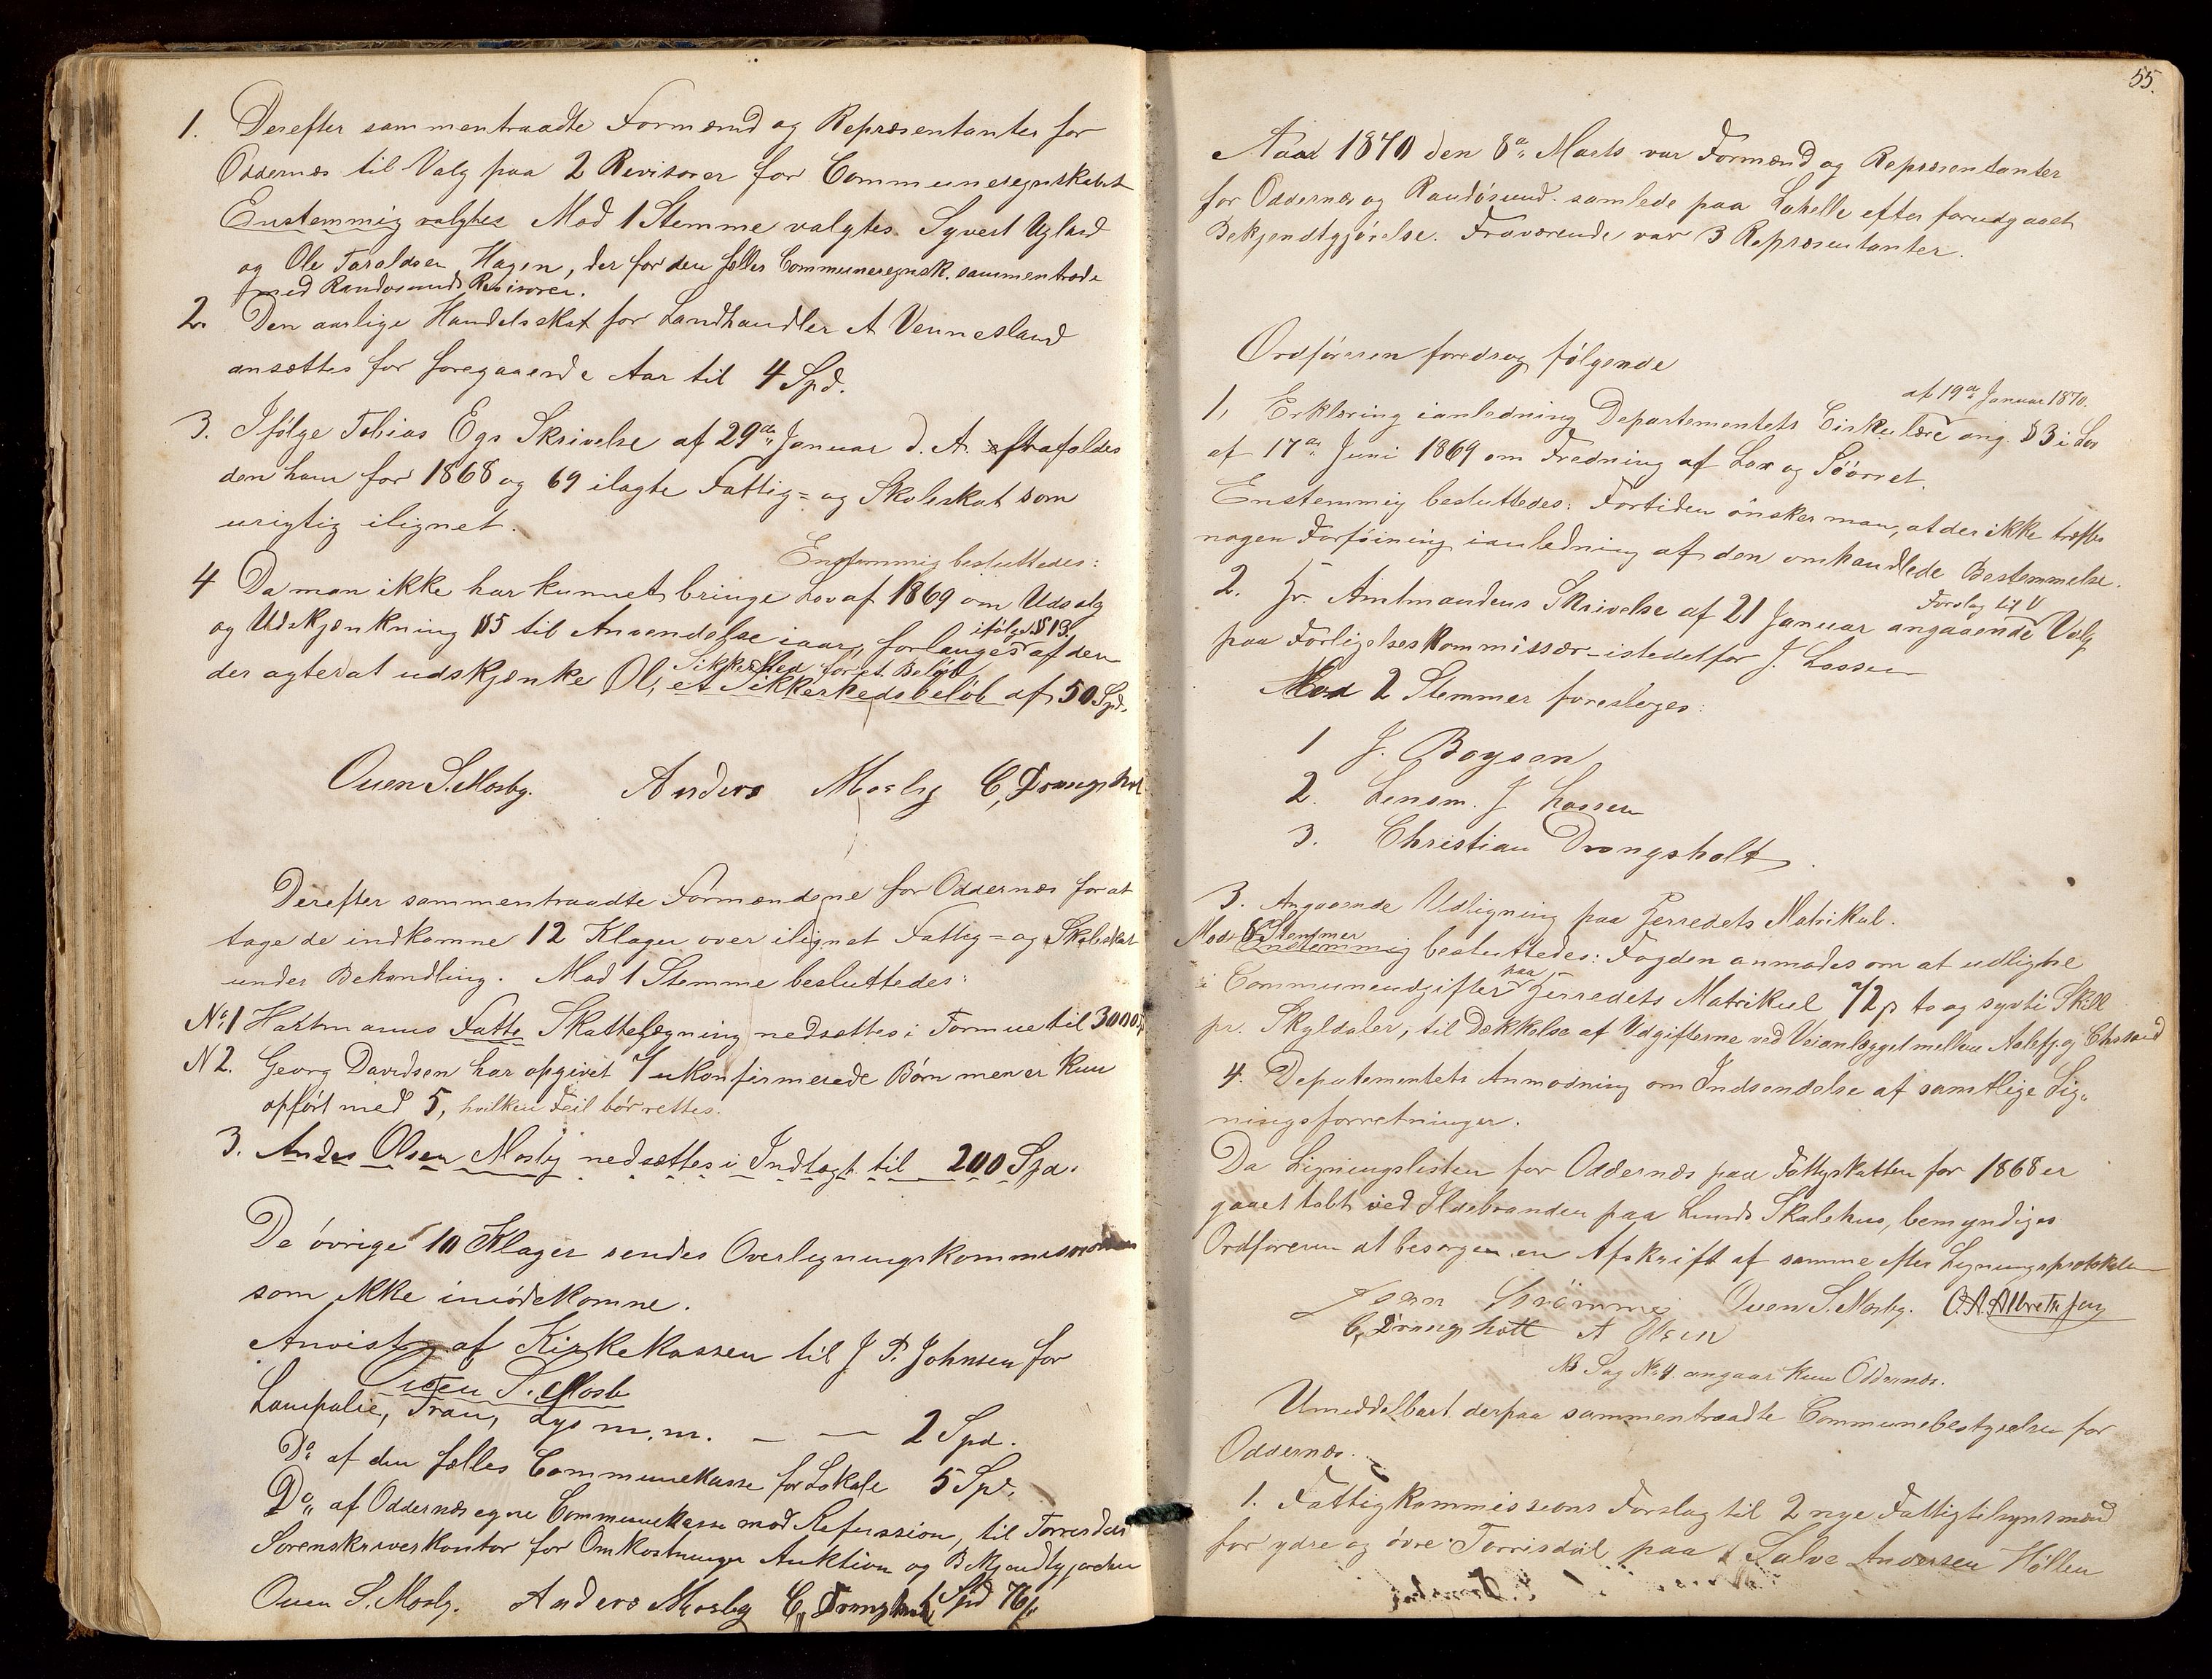 1. Derefter sammentraadte Formænd og Repræsentanter for
Oddernæs til Valg paa 2 Revisorer for Communeregnskabet
Enstemmig valgtes Mod 1 Stemme valgtes Syvert Ugland
og Ole Taraldsen Hagen, der for den felles Communeregnsk. sammentræde
med Randøsunds Revisorer.
2. Den aarlige Handelsskat for Landhandler A Vennesland
ansættes for foregaaende Aar til 4 Spd.
3. Ifølge Tobias Egs Skrivelse af 29de Januar d. A. frafaldes
den ham for 1868 og 69 ilagte Fattig= og Skoleskat som
urigtig ilignet.
Enstemmig besluttedes:
4 Da man ikke har kunnet bringe Lov af 1869 om Udsalg
og Udskjænkning §5 til Anvendelse iaar, forlanges ifølge §13. af den
der agter at udskjænke Øl, et Sikkerhedsbeløb Sikkerhed for et Beløb af 50 Spd.
Ouen S. Mosby. Anders Mosby C, Drangsholt
Derefter sammentraadte Formændene for Oddernæs for at
tage de indkomne 12 Klager over ilignet Fattig= og Skoleskat
under Behandling. Mod 1 Stemme besluttedes:
No. 1 Hartmanns Fatte Skattelegning nedsættes i Formue til 3000
N 2. Georg Davidsen har opgivet 7 ukonfirmerede Børn men er kun
opført med 5, hvilken Feil bør rettes.
3. Anders Olsen Mosby nedsættes i Indtægt til 200 Spd.
De øvrige 10 Klager sendes Overligningskommissionen
som ikke imødekomne.
Anvist af Kirkekassen til J P. Johnsen for
Ouen S. Mosb
Lampolie, Tran, Lys m. m. — — 2 Spd.
Do af den felles Communekasse for Lokale 5 Spd.
Do af Oddernæs egne Communekasse mod Refussion, til Torrisdals
Sorenskriverkontor for Omkostninger Auktion og Bekjendtgjørelse
Ouen S. Mosby. Anders Mosby C, Drangsholt Spd 76
55.
Aar 1870 den 8de Marts var Formænd og Repræsentanter
for Oddernæs og Randøsund samlede paa Lahelle efter forudgaaet
Bekjendtgjørelse. Fraværende var 3 Repræsentanter.
Ordføreren foredrog følgende
1, Erklæring ianledning Departementets Cirkulære af 19de Januar 1870. ang. §3 i Lov
af 17de Juni 1869 om Fredning af Lax og Søørret.
Enstemmig besluttedes: Fortiden ønsker man, at der ikke træffes
nogen Forføining ianledning af den omhandlede Bestemmelse.
2. Hr. Amtmandens Skrivelse af 21 Januar angaaende Forslag til Valg
paa Forligelseskommissær istedetfor J. Lassen
Mod 2 Stemmer foresloges:
1 J. Boysen
2. Lensm. J Lassen
3. Christian Drangsholt.
3. Angaaende Udligning paa Herredets Matrikul.
Mod 8 Stemmer Enstemmig besluttedes: Fogden anmodes om at udligne
i Communeudgifter paa Herredets Matrikul 72 β to og syvti Skill
pr. Skyldaler, til Dækkelse af Udgifterne ved Veianlægget mellem Aalefj. og Chrsand
4. Depatementets Anmodning om Indsendelse af samtlige Lig„
ningsforretninger.
Da Ligningslisten for Oddernæs paa Fattigskatten for 1868 er
gaaet tabt ved Ildebranden paa Lunds Skolehus, bemyndiges
Ordføreren at besørge en Afskrift af samme efter Ligningsprotokollen
Strømme Ouen S. Mosby. O. A. Albretsen
C, Drangsholt A Olsen
NB Sag No 4. angaar kun Oddernæs.
Umiddelbart derpaa sammentraadte Communebestyrelsen for
Oddernæs.
1. Fattigkommissions Forslag til 2 nye Fattigtilsynsmænd
for ydre og øvre Torrisdal paa Salve Andersen Høllen